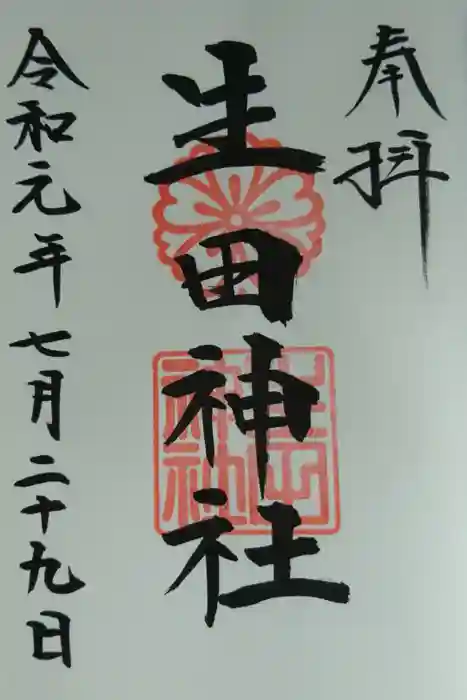 奉拝
生田神社
生田神社
令和元年七月二十九日